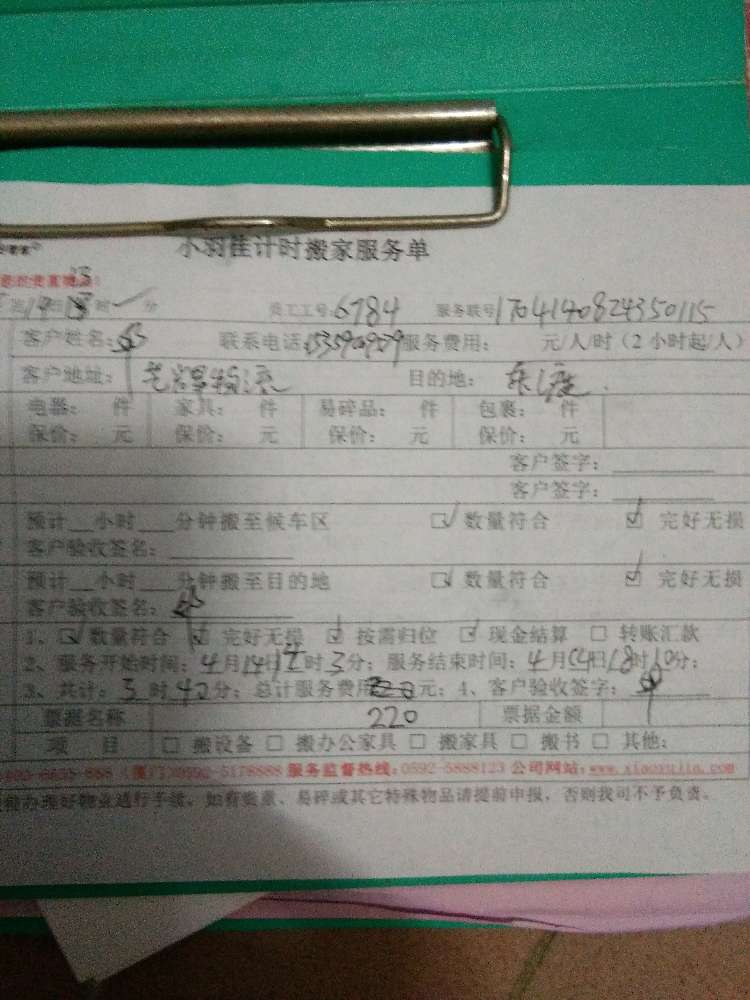 小羽佳计时搬家服务单
时 分 员工工号:6784 服务联号170414082435 0115
客户姓名: 联系电话: 服务费用: 元/人/时(2小时起/人)
客户地址: 物流 目的地: 东渡
电器: 件 家具: 件 易碎品: 件 包裹: 件
保价: 元 保价: 元 保价: 元 保价: 元
客户签字:
客户签字:
预计__小时___分钟搬至候车区 ☑ 数量符合 ☑ 完好无损
客户验收签名:
预计__小时___分钟搬至目的地 ☑ 数量符合 ☑ 完好无损
客户验收签名:
1、☑ 数量符合 ☑ 完好无损 ☑ 按需归位 ☑ 现金结算 □ 转账汇款
2、服务开始时间:4月14日 时3分;服务结束时间:4月14日18时10分;
3、共计:3时40分;总计服务费用 元;4、客户验收签字:
220
票据名称 票据金额
项 目 □ 搬设备 □ 搬办公家具 □ 搬家具 □ 搬书 □ 其他:
(厦门)0592-5178888 服务监督热线:0592-5888123 公司网站:www.xiaoyujia.com
办理好物业通行手续,如有贵重、易碎或其它特殊物品请提前申报,否则我司不予负责。